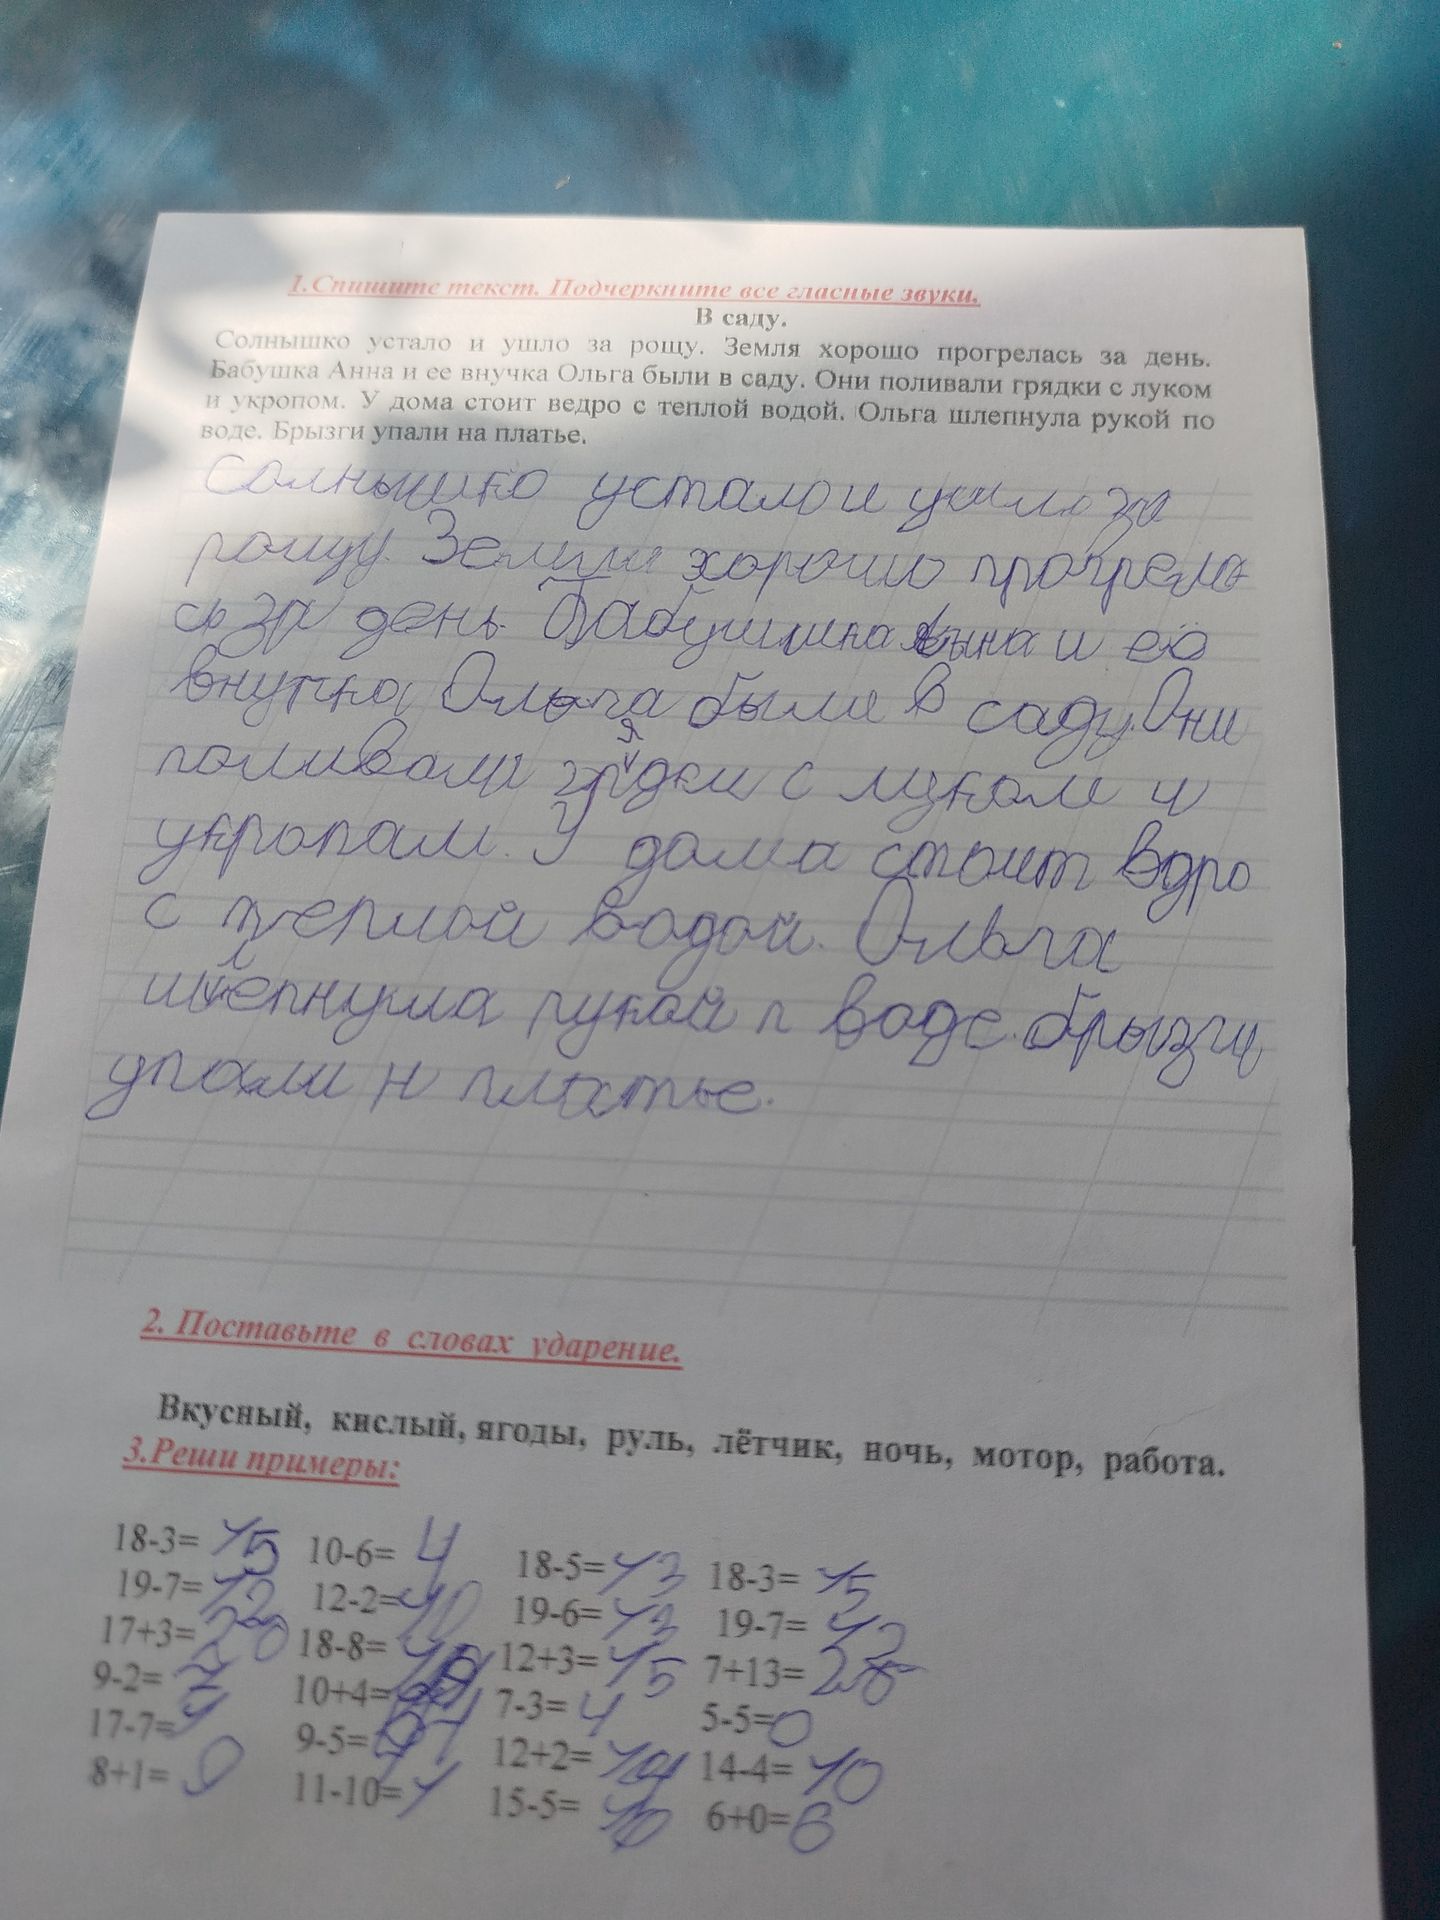 1.Спишите текст. Подчеркните все гласные звуки.
В саду.
Солнышко устало и ушло за рощу. Земля хорошо прогрелась за день.
Бабушка Анна и ее внучка Ольга были в саду. Они поливали грядки с луком
и укропом. У дома стоит ведро с теплой водой. Ольга шлепнула рукой по
воде. Брызги упали на платье.
Солнышко устало и ушло за
рощу. Земля хорошо прогрела
сь за день. Бабушка и её
внучка Ольга были в саду. Они
поливали грядки с луком и
укропам. У дома стоит
с теплой водой. Ольга
шлёпнула рукой п воде. брызги
упали н платье.
2. Поставьте в словах ударение.
Вкусный, кислый, ягоды, руль, лётчик, ночь, мотор, работа.
3.Реши примеры:
18-3= 15 10-6= 4 18-5= 13 18-3= 15
19-7= 12 12-2= 10 19-6= 13 19-7= 12
17+3= 20 18-8= 12+3= 15 7+13=
9-2= 7 10+4= 7-3= 4 5-5= 0
17-7= 9-5= 12+2= 14 14-4= 10
8+1= 9 11-10= 1 15-5= 10 6+0= 6